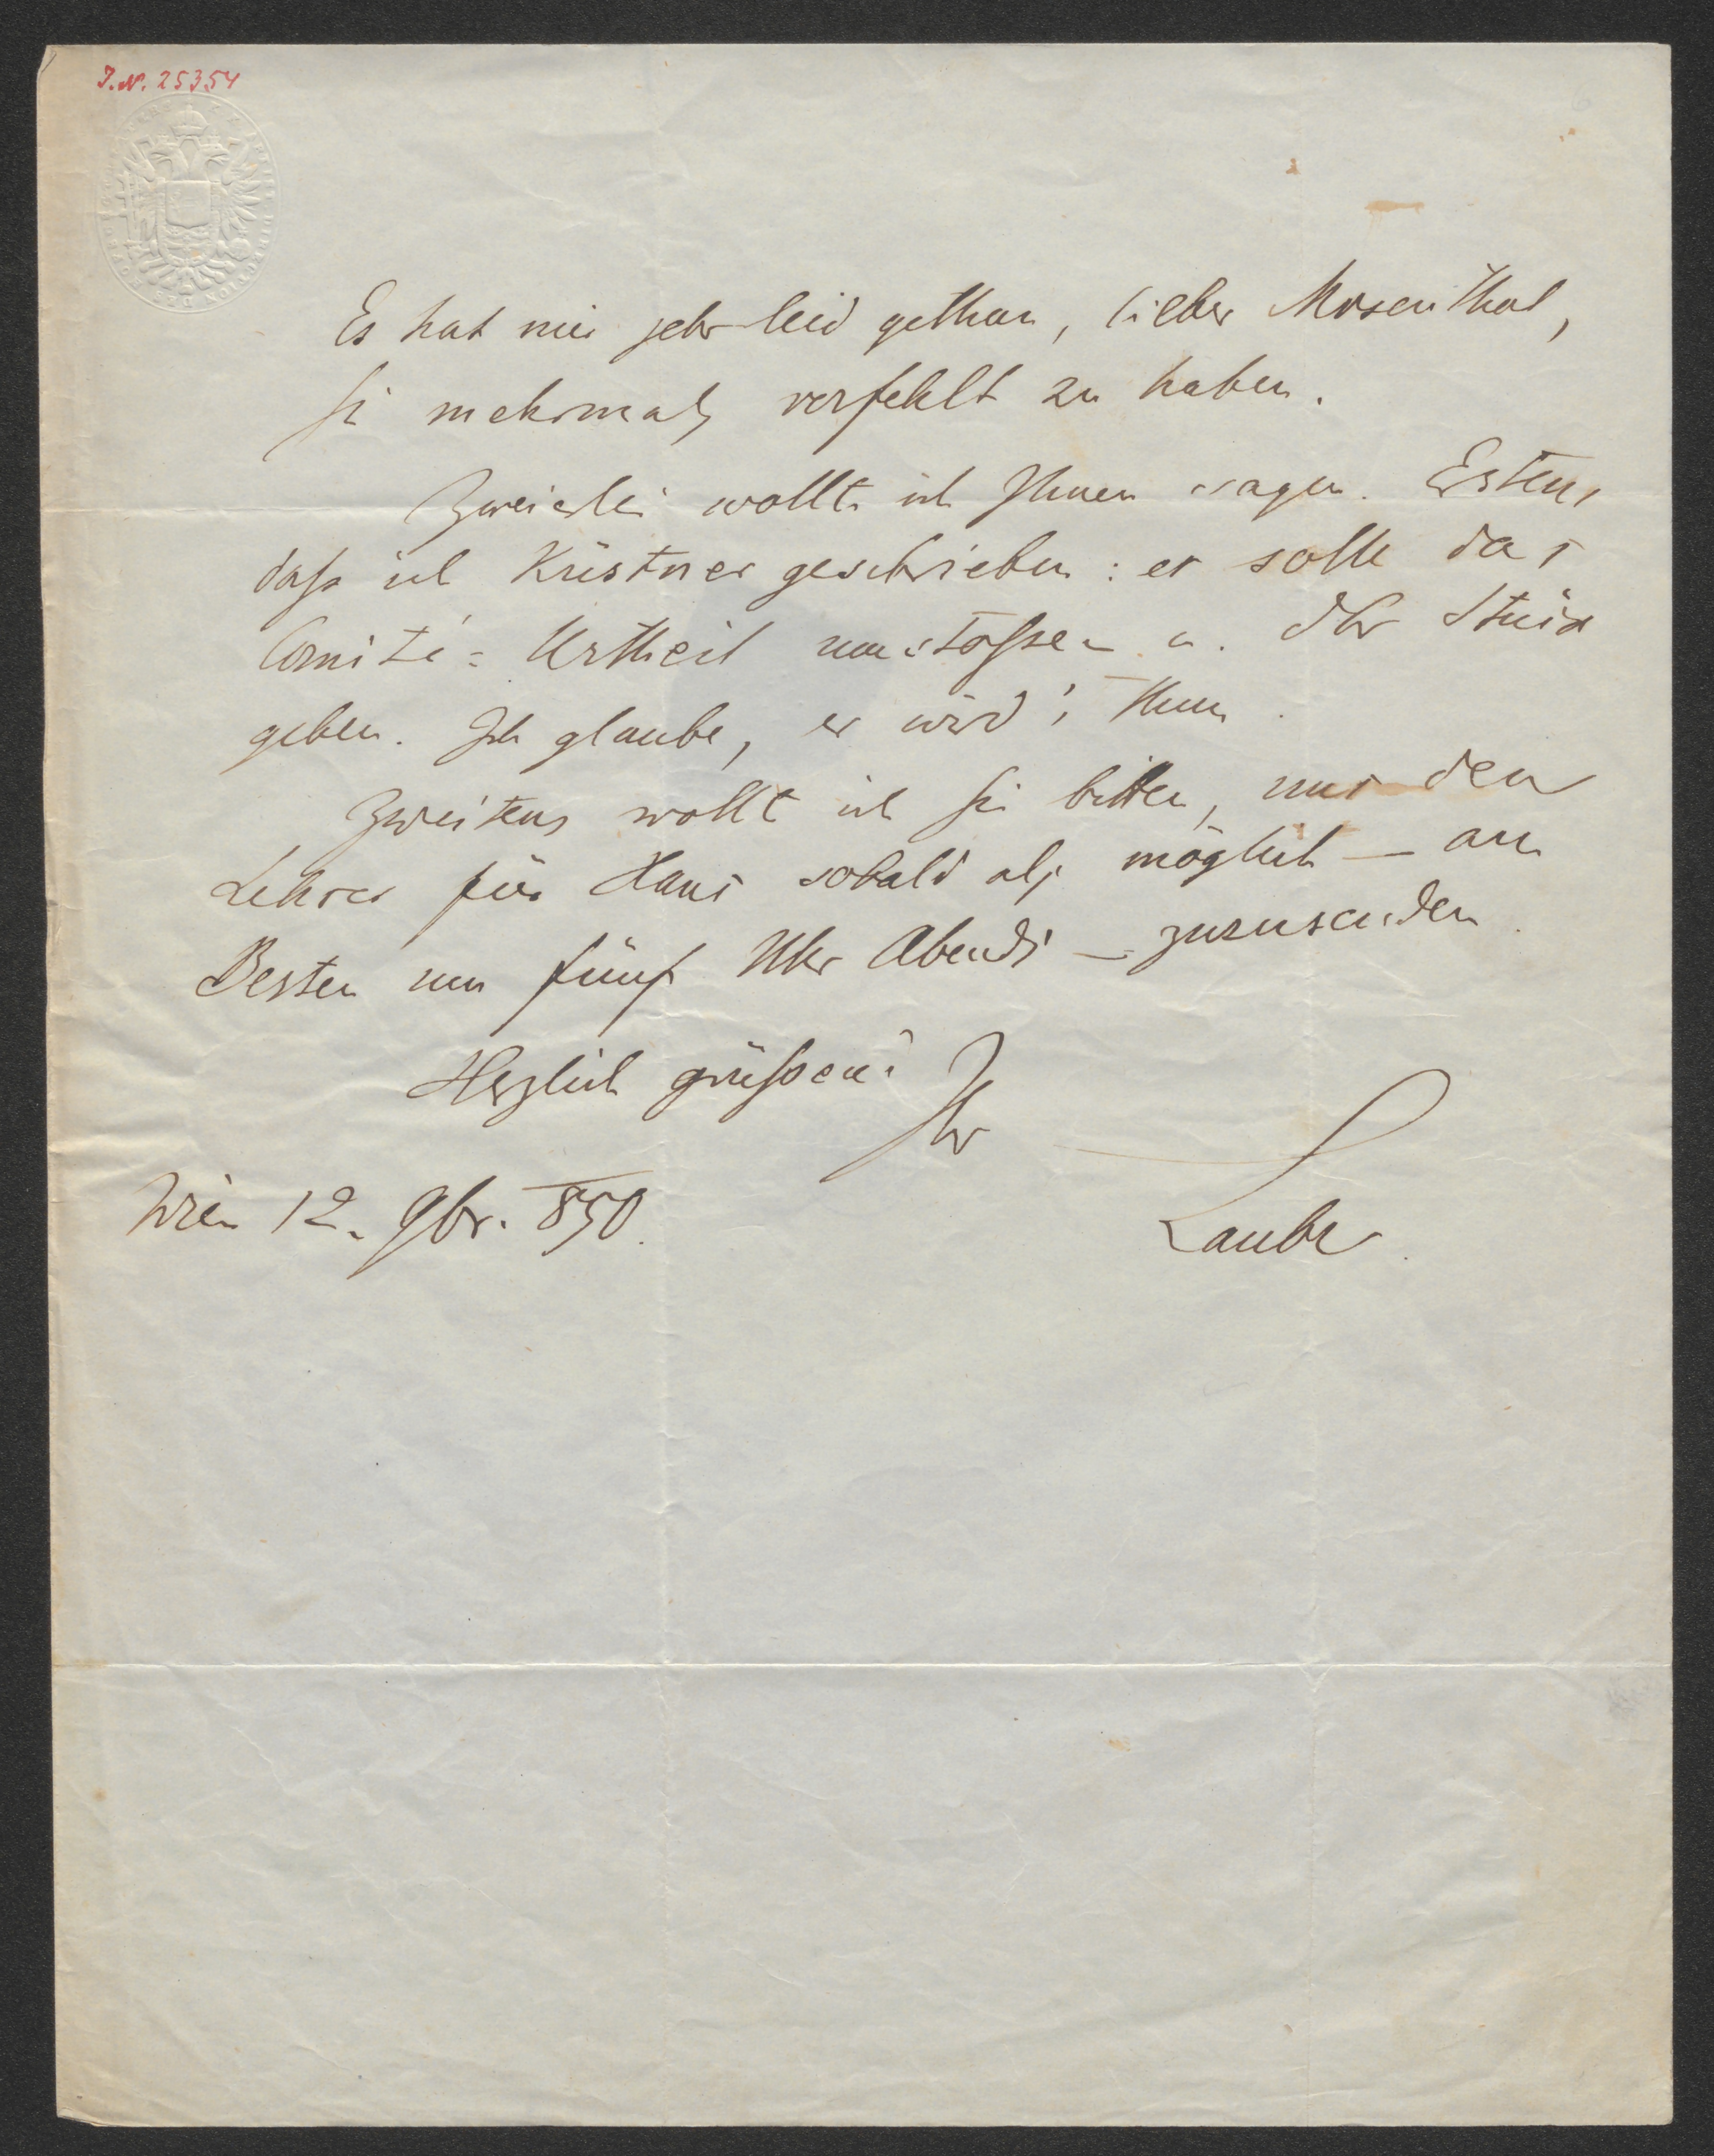 J.N. 25354
Es hat mir sehr leid gethan, lieber Mosenthal,
Sie mehrmals verfehlt zu haben.
Zweierlei wollte ich Ihnen sagen. Erstens
daß ich Küstner geschrieben: er solle das
Comité=Urtheil umstoßen u. Ihr Stück
geben. Ich glaube, er wird's thun.
Zweitens wollt ich Sie bitten, mir den
Lehrer für Hans sobald als möglich – am
Besten um fünf Uhr Abends – zuzusenden.
Herzlich grüßend
Ihr
Laube.
Wien 12. 9br. 850.